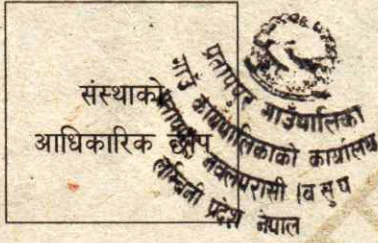 संस्थाको
आधिकारिक छाप
प्रतापपुर गाउँपालिका
गाउँ कार्यपालिकाको कार्यालय
प्रतापपुर नवलपरासी (ब सु प
लुम्बिनी प्रदेश नेपाल